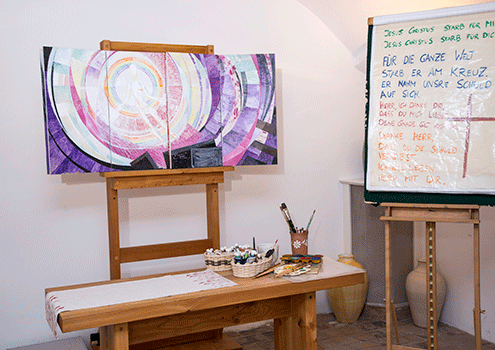 JESUS CHRISTUS STARB FÜR MI
JESUS CHRISTUS STARB FÜR DIC
FÜR DIE GANZE WELT
STARB ER AM KREUZ.
ER NAHM UNSRE SCHULD
AUF SICH.
HERR, ICH DANKE DIR,
DASS DU MICH
DEINE GNADE
DANKE HERR,
DASS DU DIE SCHULD
MIT DIR.